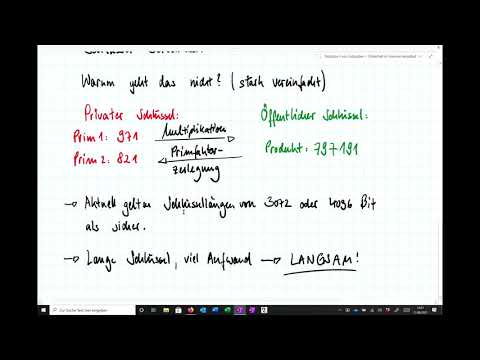 Warum geht das nicht? (stark vereinfacht)
Privater Schlüssel:
Öffentlicher Schlüssel:
Prim 1: 971
Multiplikation
Prim 2: 821
Primfaktor-
zerlegung
Produkt: 797191
→ Aktuell gelten Schlüssellängen von 3072 oder 4096 Bit
als sicher.
→ Lange Schlüssel, viel Aufwand → LANGSAM!
Zur Suche Text hier eingeben